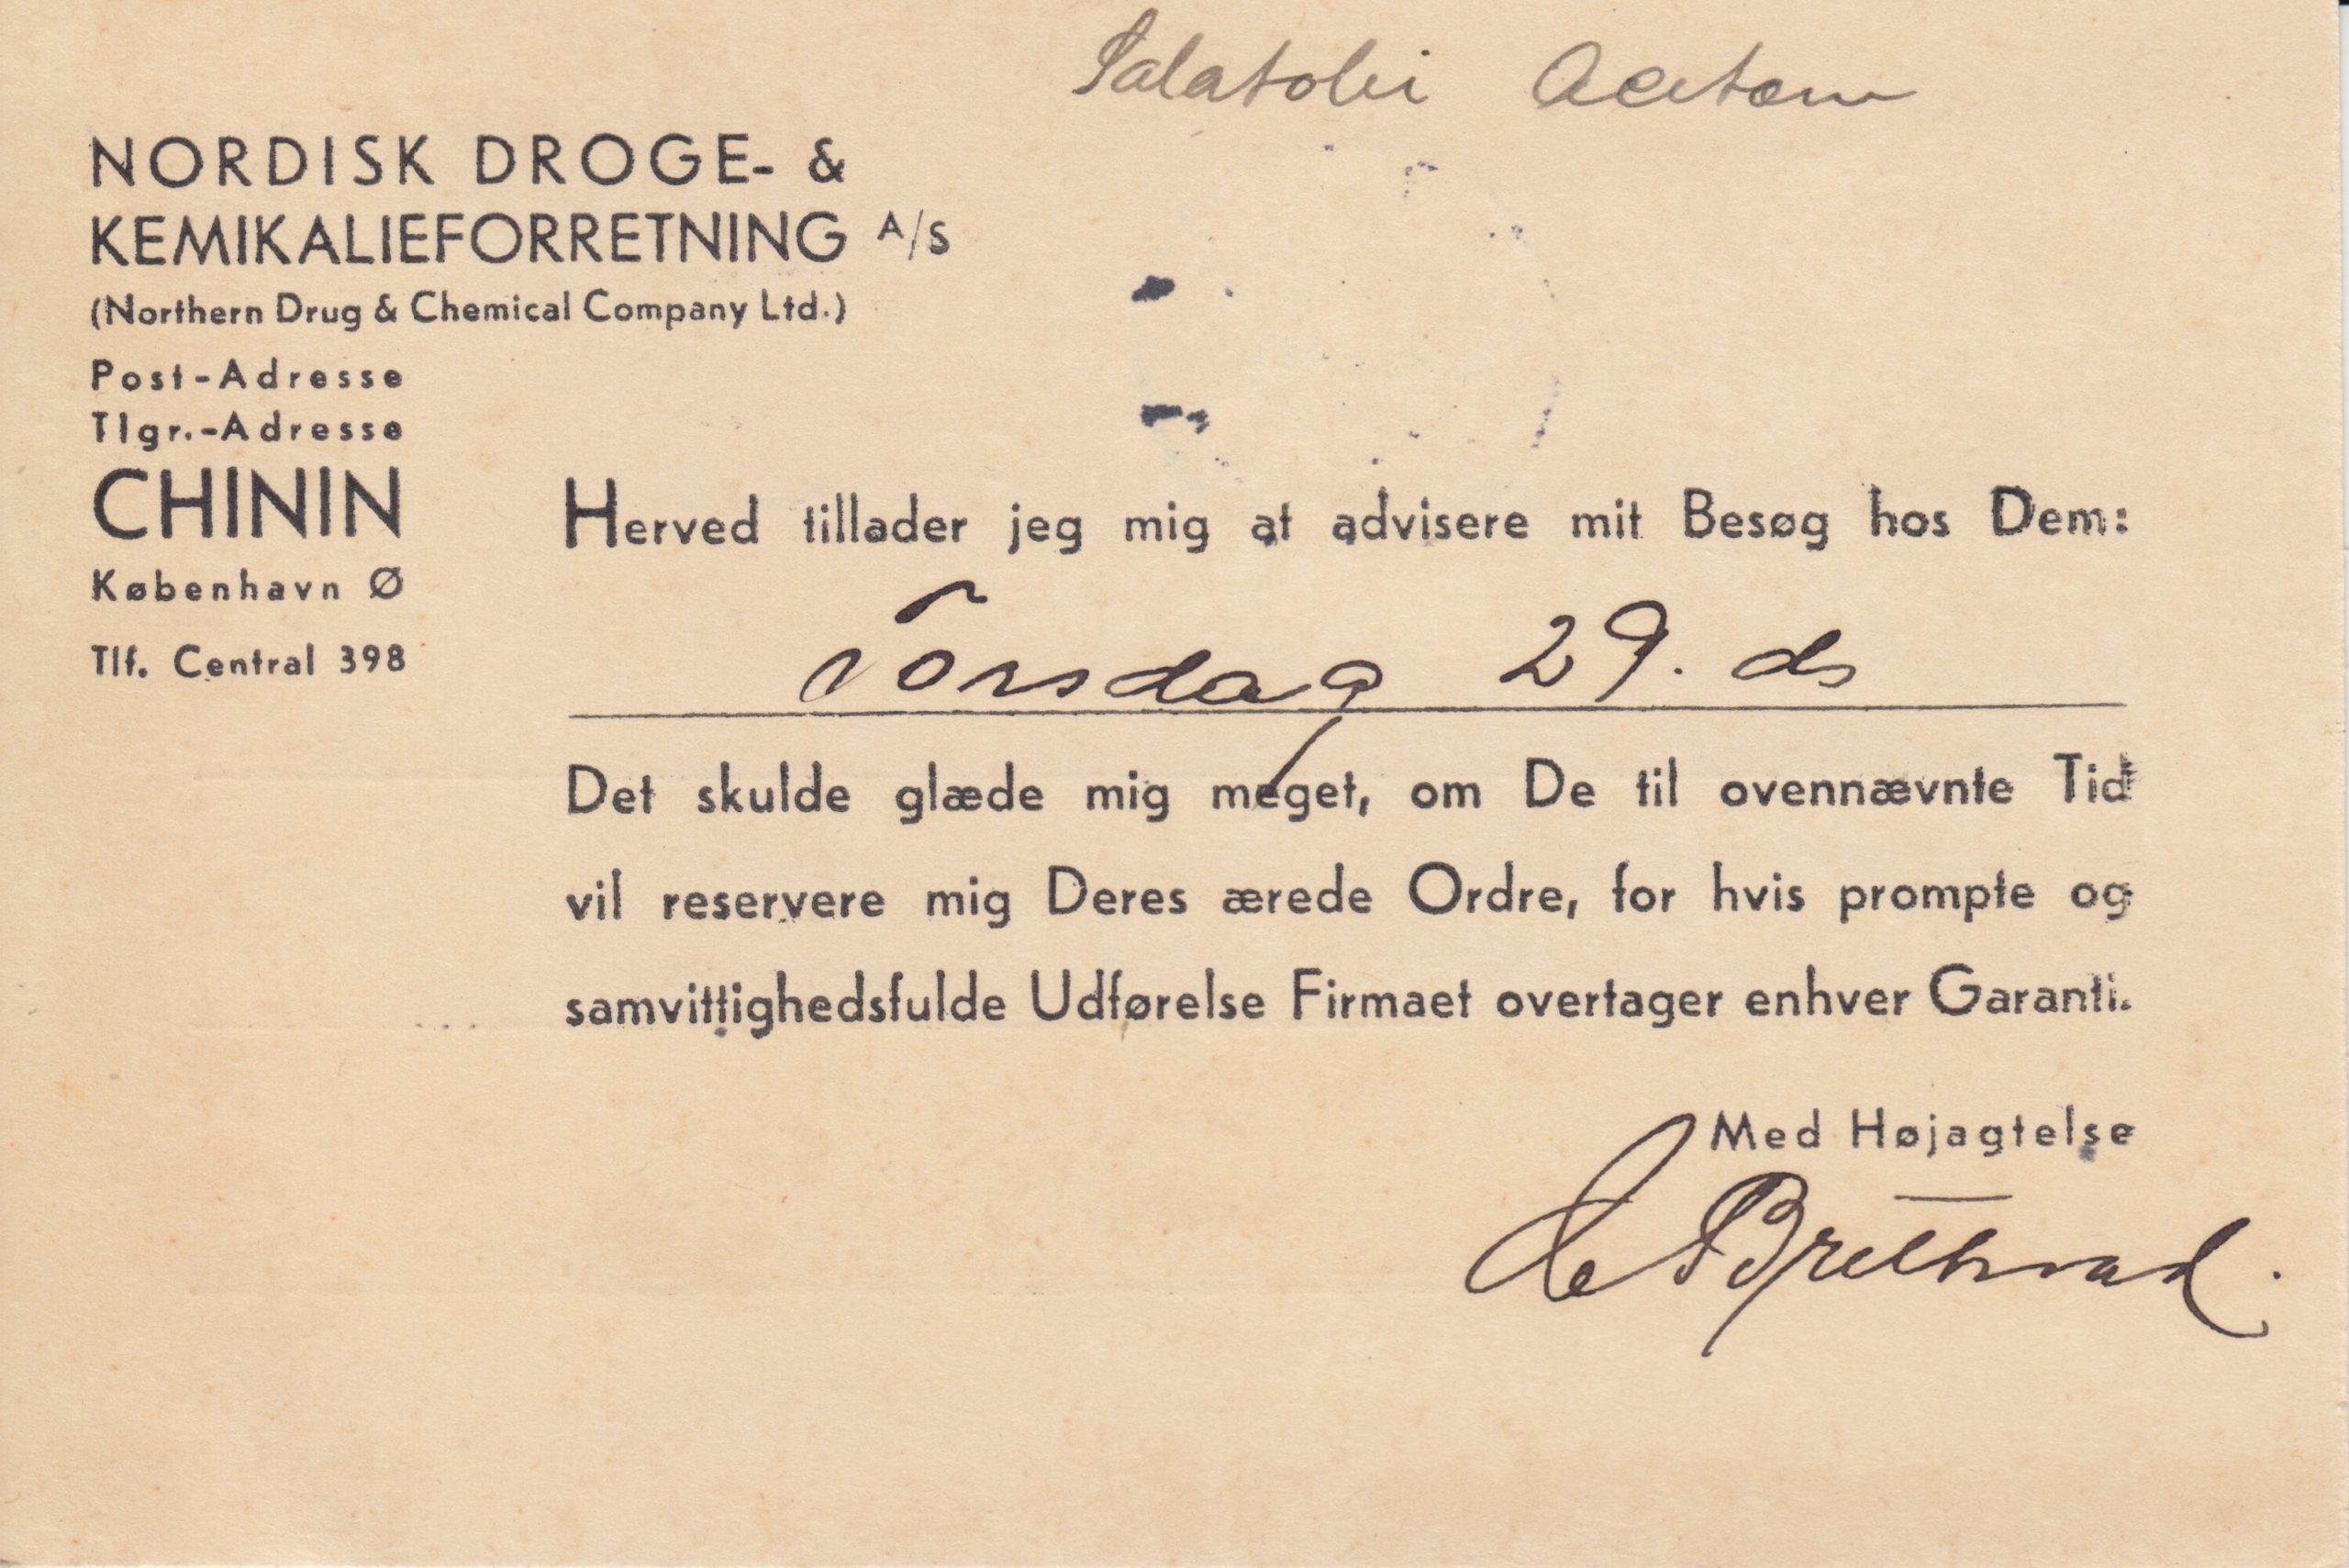 Salatolie Acetone
NORDISK DROGE- &
KEMIKALIEFORRETNING A/S
(Northern Drug & Chemical Company Ltd.)
Post-Adresse
Tlgr.-Adresse
CHININ
København Ø
Tlf. Central 398
Herved tillader jeg mig at advisere mit Besøg hos Dem:
Torsdag 29. ds
Det skulde glæde mig meget, om De til ovennævnte Tid
vil reservere mig Deres ærede Ordre, for hvis prompte og
samvittighedsfulde Udførelse Firmaet overtager enhver Garanti.
Med Højagtelse